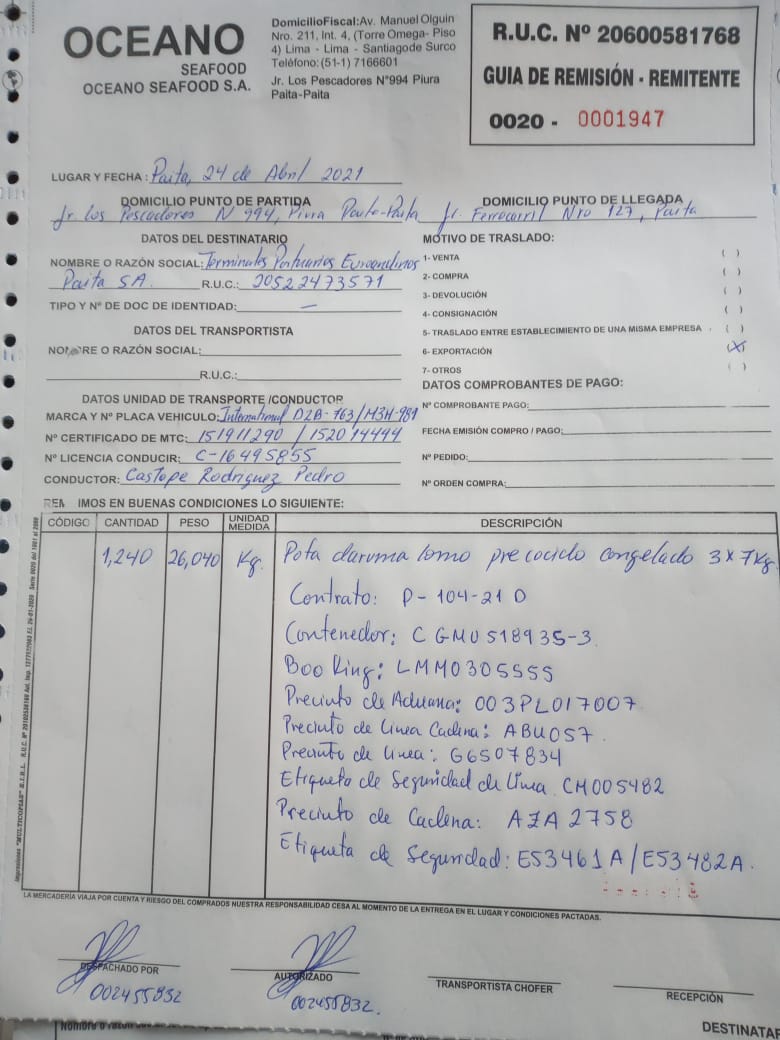 OCEANO
SEAFOOD
OCEANO SEAFOOD S.A.
DomicilioFiscal:Av. Manuel Olguin
Nro. 211, Int. 4, (Torre Omega- Piso
4) Lima - Lima - Santiagode Surco
Teléfono:(51-1) 7166601
Jr. Los Pescadores N°994 Piura
Paita-Paita
R.U.C. Nº 20600581768
GUIA DE REMISIÓN - REMITENTE
0020 - 0001947
LUGAR Y FECHA : Paita, 24 de Abril 2021
DOMICILIO PUNTO DE PARTIDA
Jr los Pescadores N 994, Piura Paita-Paita
DOMICILIO PUNTO DE LLEGADA
Jr. Ferrocarril Nro 127, Paita
DATOS DEL DESTINATARIO
NOMBRE O RAZÓN SOCIAL: Terminales Portuarios Euroandinos
Paita SA. R.U.C.: 20522473571
TIPO Y Nº DE DOC DE IDENTIDAD: —
DATOS DEL TRANSPORTISTA
NOMBRE O RAZÓN SOCIAL:
R.U.C.:
MOTIVO DE TRASLADO:
1- VENTA ( )
2- COMPRA ( )
3- DEVOLUCIÓN ( )
4- CONSIGNACIÓN ( )
5- TRASLADO ENTRE ESTABLECIMIENTO DE UNA MISMA EMPRESA . ( )
6- EXPORTACIÓN (X)
7- OTROS ( )
DATOS UNIDAD DE TRANSPORTE /CONDUCTOR
MARCA Y Nº PLACA VEHICULO: International D2B-763/M3H-981
Nº CERTIFICADO DE MTC: 151911290 / 152014494
Nº LICENCIA CONDUCIR: C-16495855
CONDUCTOR: Castope Rodriguez Pedro
DATOS COMPROBANTES DE PAGO:
Nº COMPROBANTE PAGO:
FECHA EMISIÓN COMPRO / PAGO:
Nº PEDIDO:
Nº ORDEN COMPRA:
IMOS EN BUENAS CONDICIONES LO SIGUIENTE:
CÓDIGO CANTIDAD PESO UNIDAD MEDIDA DESCRIPCIÓN
1,240 26,040 Kg. Pota daruma lomo precocido congelado 3 x 7Kg
Contrato: P-104-21 D
Contenedor: CGMU518935-3
Booking: LMM0305555
Precinto de Aduana: 003PL017007
Precinto de Linea Cadena: ABU057.
Precinto de Linea: G6507834
Etiqueta de Seguridad de Linea CM005482
Precinto de Cadena: AJA 2758
Etiqueta de Seguridad: E53461A/E53482A.
LA MERCADERÍA VIAJA POR CUENTA Y RIESGO DEL COMPRADOS NUESTRA RESPONSABILIDAD CESA AL MOMENTO DE LA ENTREGA EN EL LUGAR Y CONDICIONES PACTADAS.
DESPACHADO POR
002455832
AUTORIZADO
002455832.
TRANSPORTISTA CHOFER
RECEPCIÓN
DESTINATAR